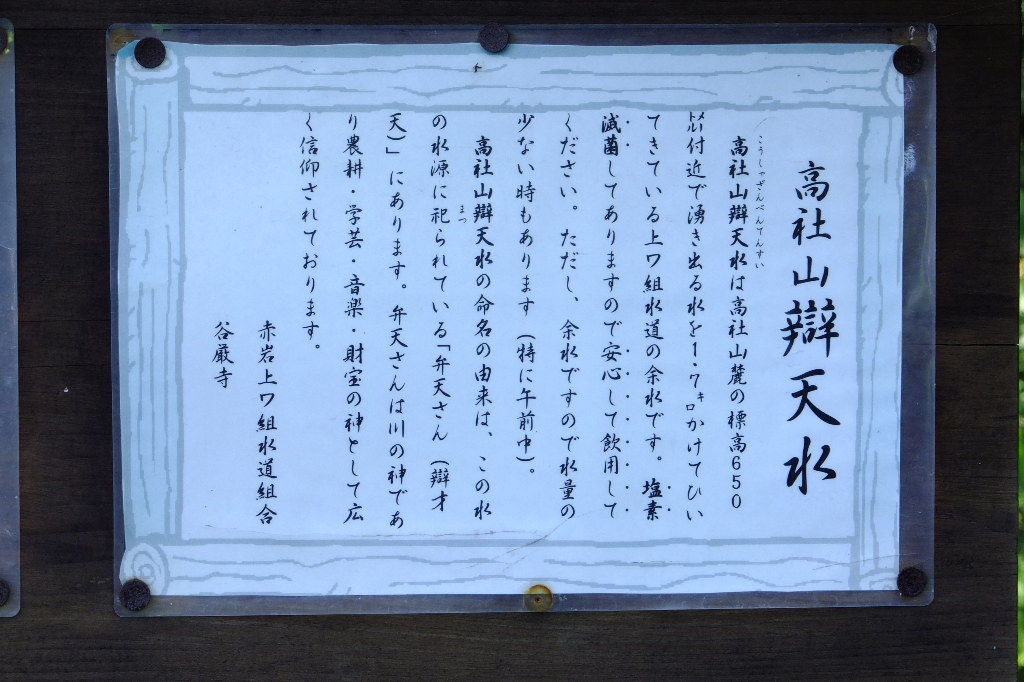 高社山辯天水
こうしゃざんべんてんすい
高社山辯天水は高社山麓の標高650
㍍付近で湧き出る水を1.7㌔かけてひい
てきている上ワ組水道の余水です。塩素
滅菌してありますので安心して飲用して
ください。ただし、余水ですので水量の
少ない時もあります（特に午前中）。
高社山辯天水の命名の由来は、この水
まつ
の水源に祀られている「弁天さん（辯才
天）」にあります。弁天さんは川の神であ
り農耕・学芸・音楽・財宝の神として広
く信仰されております。
赤岩上ワ組水道組合
谷厳寺